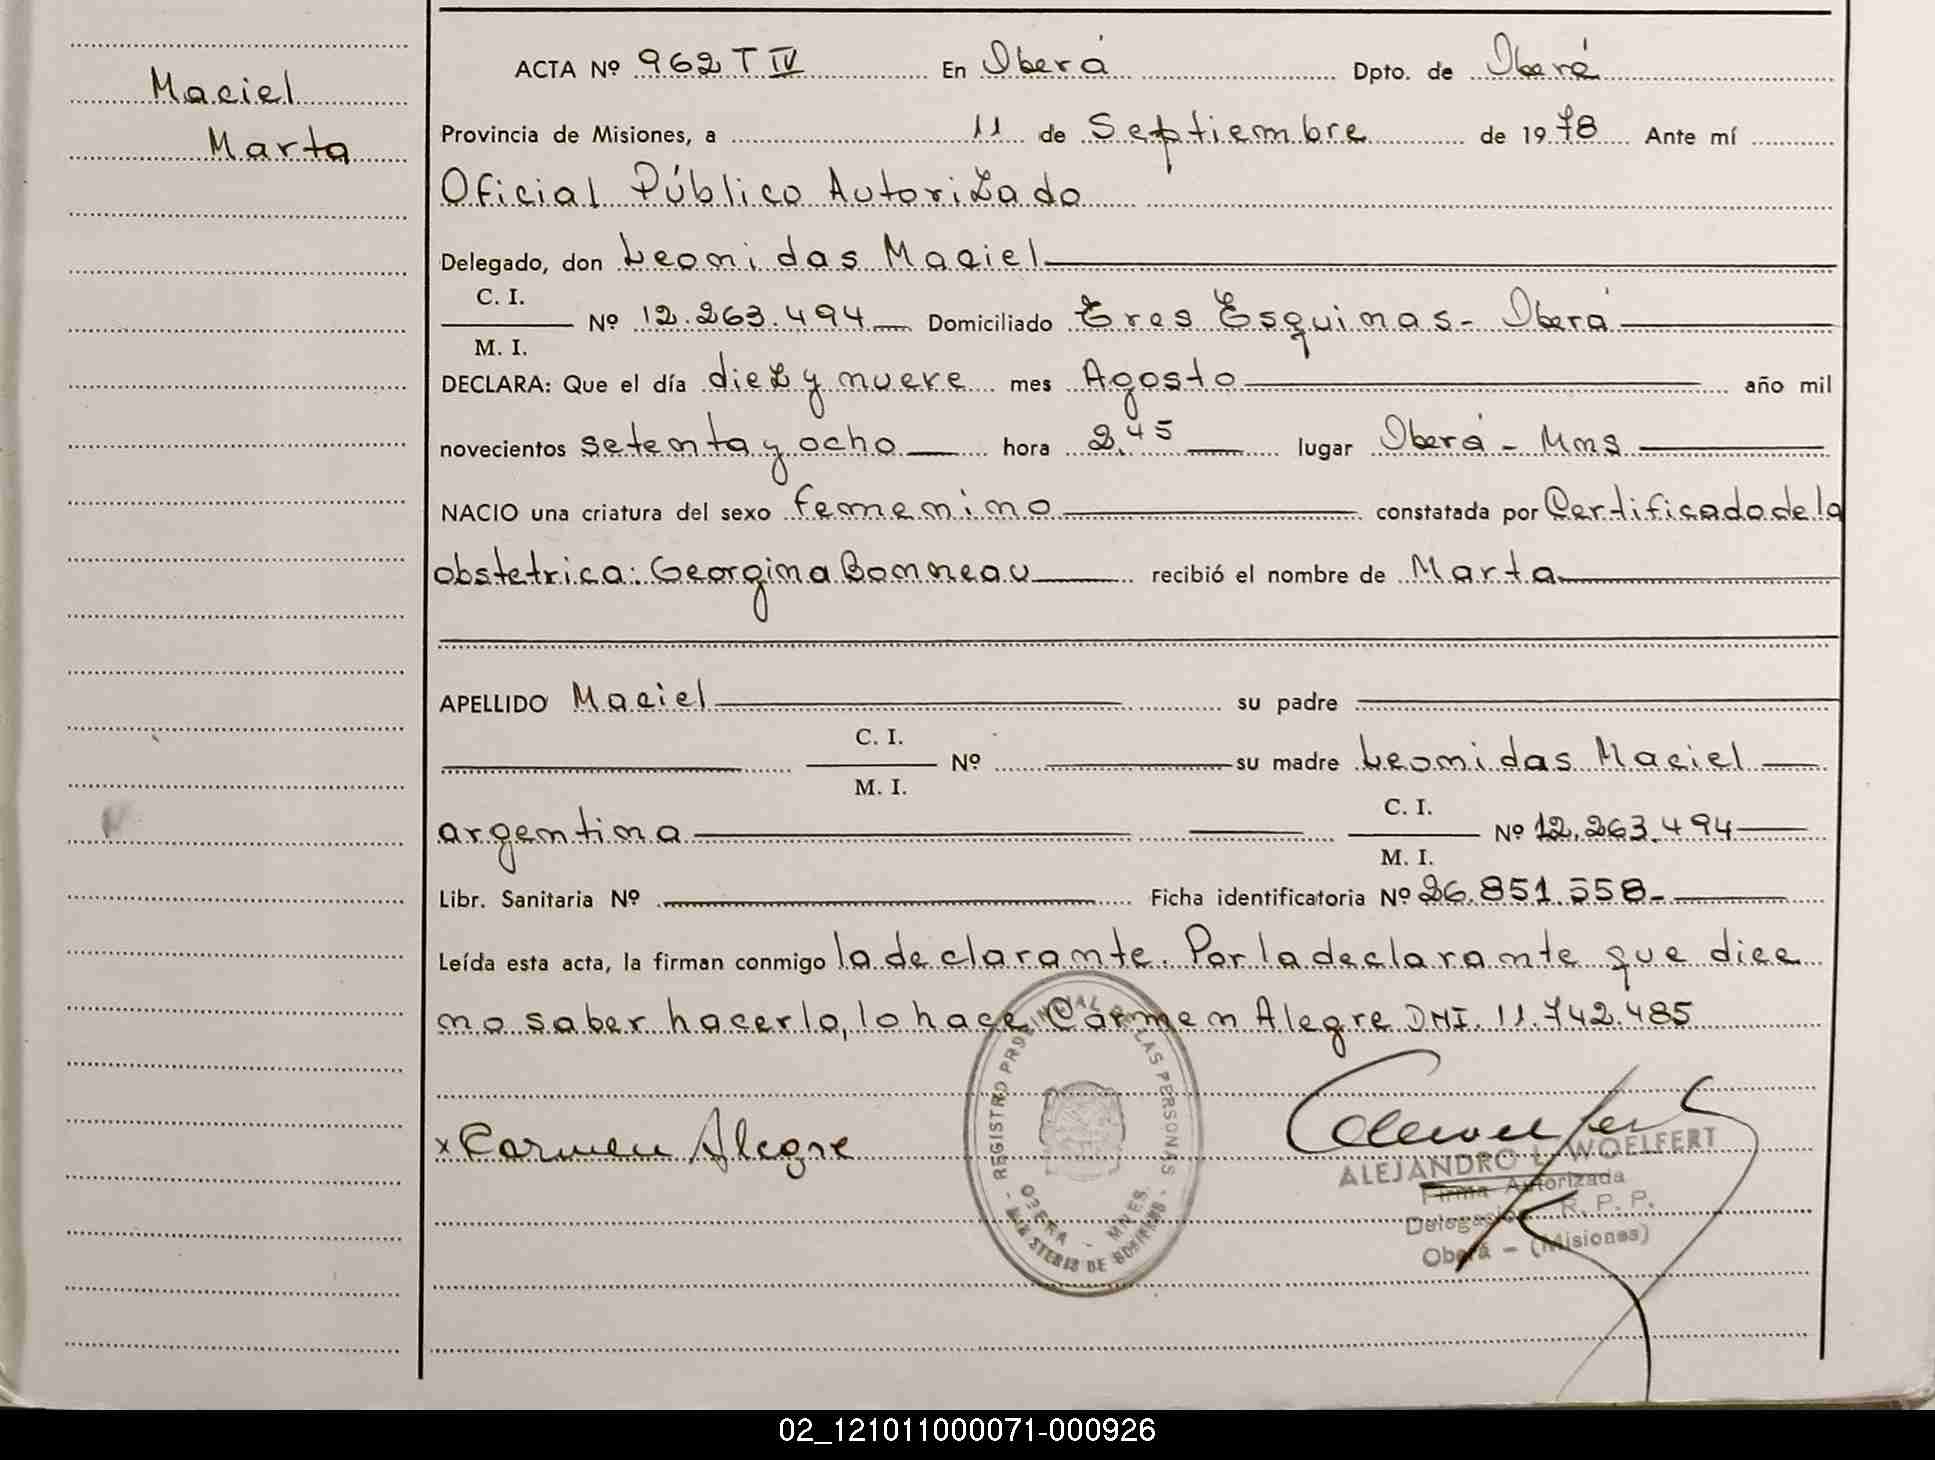 Maciel
Marta
ACTA Nº 962 T IV En Oberá Dpto. de Oberá
Provincia de Misiones, a 11 de Septiembre de 1978 Ante mí
Oficial Público Autorizado
Delegado, don Leonidas Maciel
C. I.
M. I.
Nº 12.263.494 Domiciliado Tres Esquinas - Oberá
DECLARA: Que el día diez y nueve mes Agosto año mil
novecientos setenta y ocho hora 2.45 lugar Oberá - Mnes
NACIO una criatura del sexo femenino constatada por Certificado de la
obstetrica: Georgina Bonneau recibió el nombre de Marta
APELLIDO Maciel su padre
C. I.
M. I.
Nº su madre Leonidas Maciel
argentina C. I.
M. I.
Nº 12.263.494
Libr. Sanitaria Nº Ficha identificatoria Nº 26.851.558-
Leída esta acta, la firman conmigo la declarante. Por la declarante que dice
no saber hacerlo, lo hace Carmen Alegre DNI. 11.742.485
x Carmen Alegre
REGISTRO PROVINCIAL DE LAS PERSONAS
OBERA - MNES.
MINISTERIO DE GOBIERNO
ALEJANDRO L. WOELFERT
Firma Autorizada
Delegación R. P. P.
Oberá - (Misiones)
02_121011000071-000926